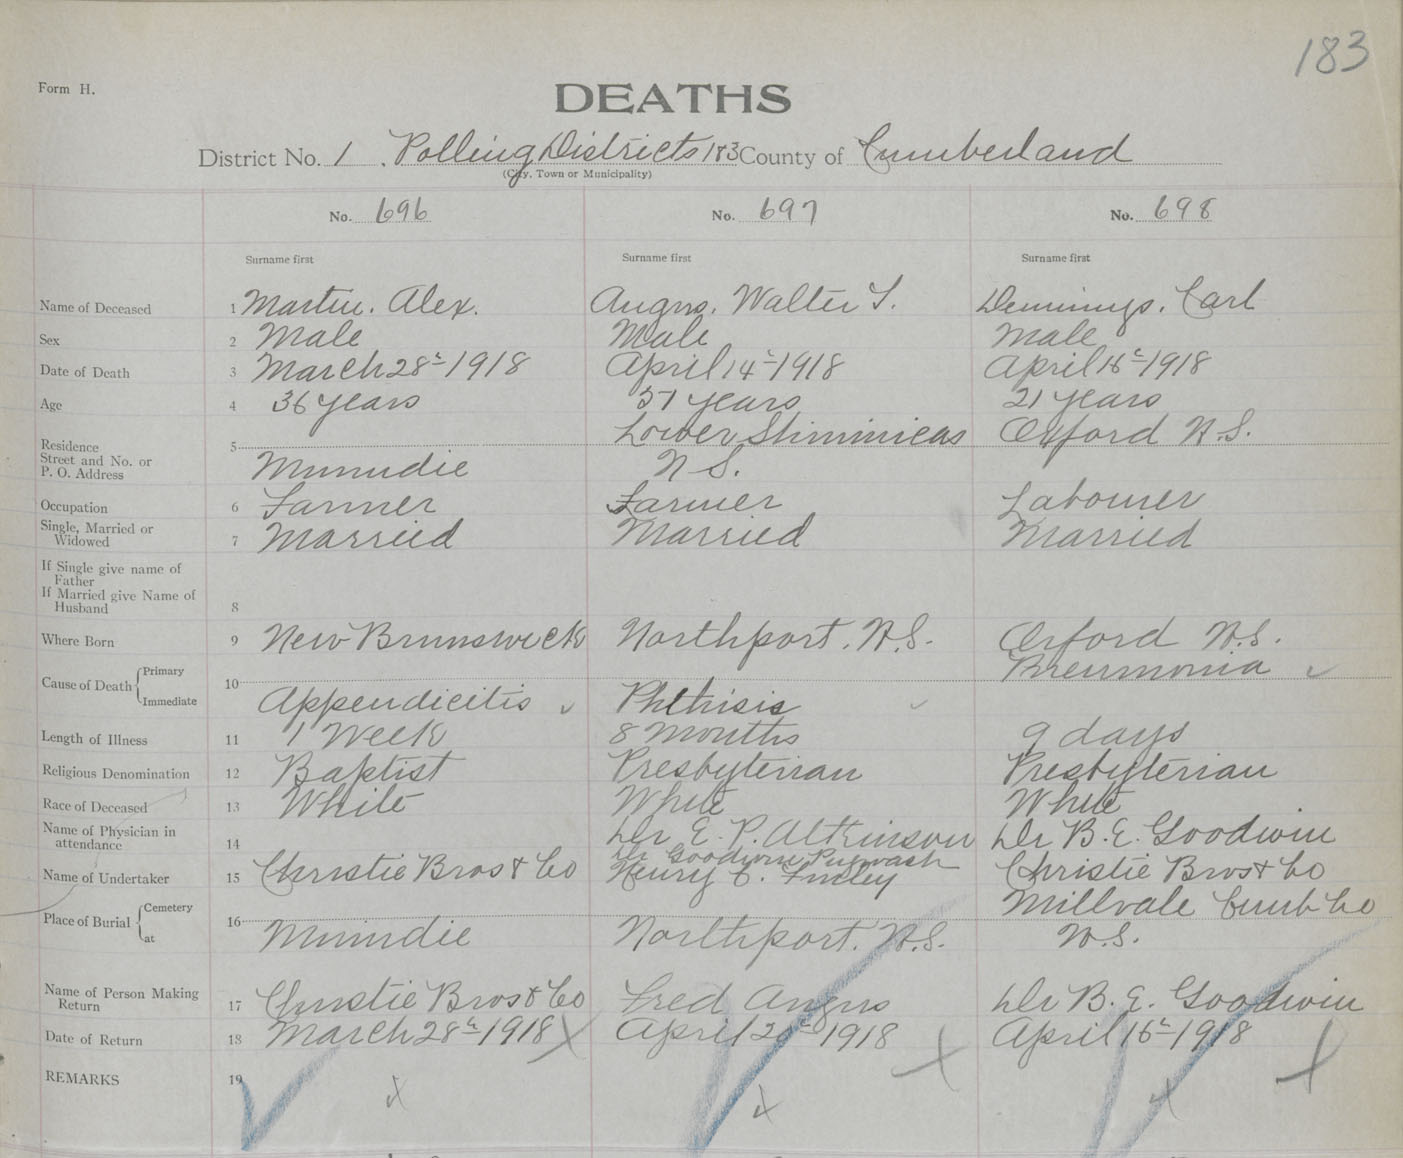 183
Form H.
DEATHS
District No. 1 . Polling Districts 183 County of Cumberland
(City, Town or Municipality)
No. 696 No. 697 No. 698
Surname first Surname first Surname first
Name of Deceased 1 Martin. Alex. Angus. Walter S. Demmings. Carl
Sex 2 Male Male Male
Date of Death 3 March 28th 1918 April 14th 1918 April 16th 1918
Age 4 36 years 57 years 21 years
Residence 5 Lower Shinimicas Oxford N.S.
Street and No. or
P. O. Address Minudie N S.
Occupation 6 Farmer Farmer Labourer
Single, Married or
Widowed 7 Married Married Married
If Single give name of
Father
If Married give Name of
Husband 8
Where Born 9 New Brunswick Northport. N.S. Oxford N.S.
Cause of Death Primary 10 Pneumonia
Immediate Appendicitis Phthisis
Length of Illness 11 1 Week 8 Months 9 days
Religious Denomination 12 Baptist Presbyterian Presbyterian
Race of Deceased 13 White White White
Name of Physician in
attendance 14 Dr E. P. Atkinson Dr B. E. Goodwin
Dr Goodwin Pugwash
Name of Undertaker 15 Christie Bros & Co Henry C. Finley Christie Bros & Co
Place of Burial Cemetery 16 Millvale Cumb Co
at Minudie Northport. N.S. N.S.
Name of Person Making
Return 17 Christie Bros & Co Fred Angus Dr B. E. Goodwin
Date of Return 18 March 28th 1918 X April 20th 1918 X April 16th 1918 X
REMARKS 19 x x x